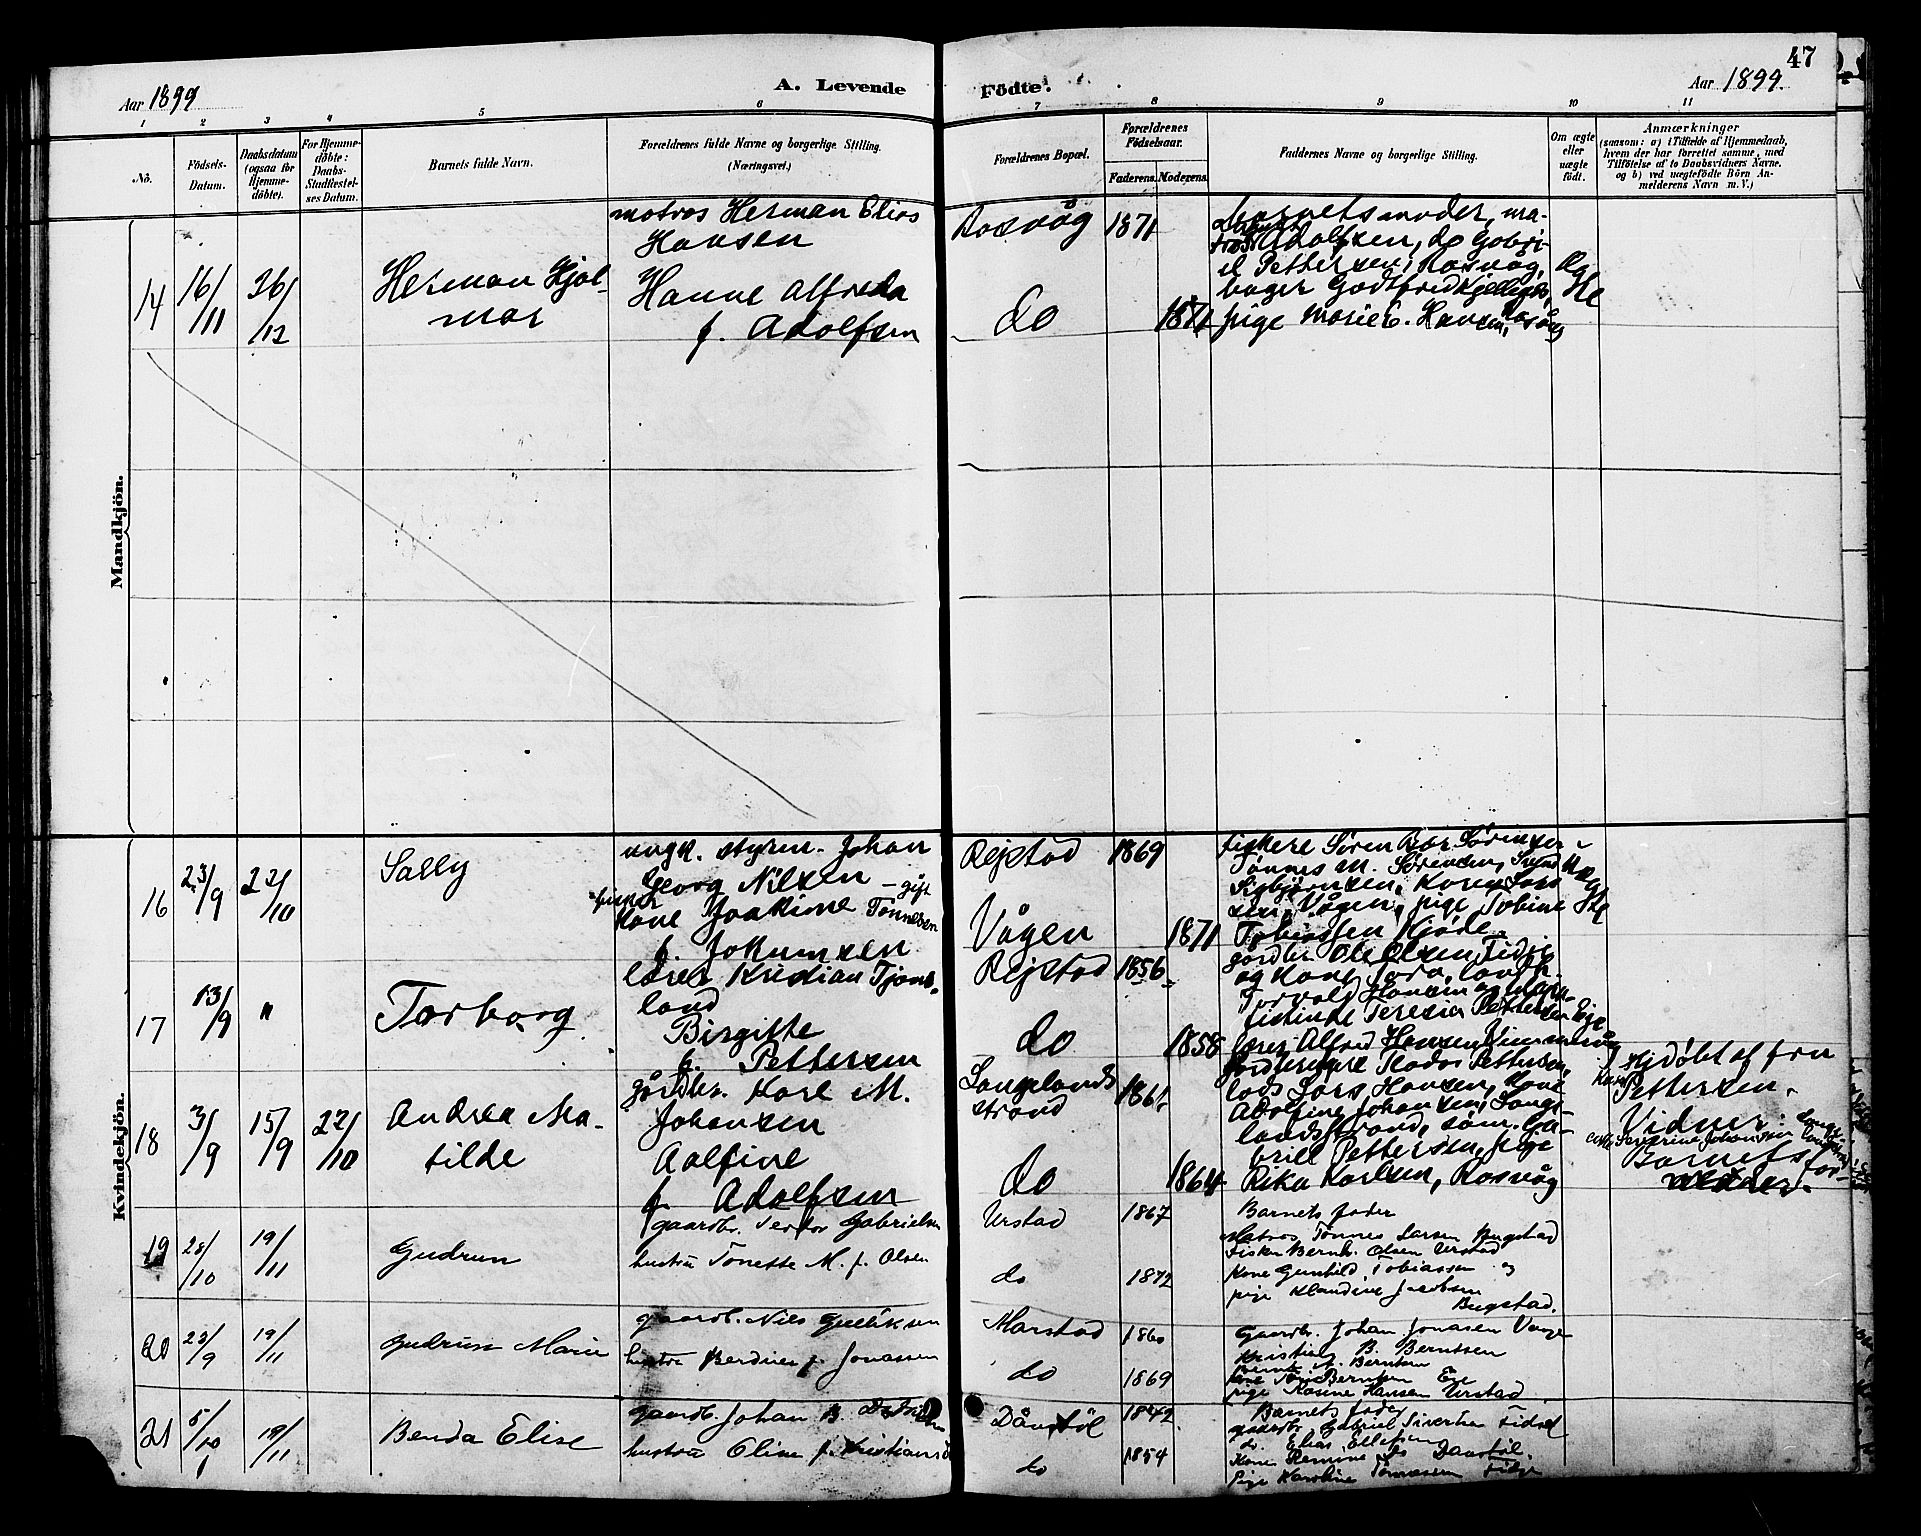 47
Aar 1899
A. Levende
Födte.
Aar 1899.
1 2 3 4 5 6 7 8 9 10 11
No.
Födsels-
Datum.
Daabsdatum
(ogsaa for
Hjemme-
döbte).
For Hjemme-
döbte:
Daabs-
Stadfæstel-
ses Datum.
Barnets fulde Navn.
Forældrenes fulde Navne og borgerlige Stilling.
(Næringsvei.)
Forældrenes Bopæl.
Forældrenes
Födselsaar.
Faderens.
Moderens.
Faddernes Navne og borgerlige Stilling.
Om ægte
eller
uægte
født.
Anmærkninger
(saasom: a) i Tilfælde af Hjemmedaab,
hvem der har forrettet samme, med
Tilföielse af to Daabsvidners Navne.
og b) ved uægtefödte Börn An-
melderens Navn m. V.)
Mandkjön.
14
16/11
26/12
Herman Hjal-
mar
matros Herman Elias
Hansen
Hanne Alfreda
f. Adolfsen
Rasvåg
do
1871
1871
barnets moder, ma-
tros Adolfsen, do Gabri-
el Pettersen, Rasvåg,
bager Godtfred
pige Marie E. Hansen, Rasvåg
Ægte
Kvindekjön.
16
23/9
22/10
Sally
ungk. styrm. Johan
Georg Nilsen – gift
fisker
kone Joakime Tønnesen
f. Jokumsen
Rejstad
Vågen
1869
1871
fiskere Søren Sørensen
Tønnes M. Sørensen,
Sigbjørnsen, Lars
sen, Vågen, pige Tobine
Tobiassen
17
13/9
"
Torborg
lærer Kristian Tjøms-
land
Birgitte
f. Pettersen
Rejstad
do
1856
1858
gårdbr. Ole Olsen
og kone
Torvald Hansen og
Teresia Pettersen Eje
lærer Alfred Hansen
18
3/9
15/9
22/10
Andrea Ma-
tilde
gårdbr. Karl M.
Johansen
Aolfine
f. Adolfsen
Langelands
strand
do
1861
1864
Pettersen,
lods Lars Hansen, kone
Adolfine Johansen, Lange-
landsstrand, søm. Ga-
briel Pettersen, pige
Rika Karlsen, Rasvåg
Hjdøbt af fru
Pettersen.
Vidner:
Severine Johansen
Barnets for-
ældre.
19
28/10
19/11
Gudrun
gaardbr. Gabrielsen
hustru Tonette M. f. Olsen
Urstad
do
1867
1872
Barnets fader
Matros Tønnes Larsen Bugstad
Fisker Bernh. Olsen Urstad
Kone Gunhild Tobiassen og
pige Klaudine Jacobsen
Bugstad.
20
23/9
19/11
Gudrun Marie
gaardb. Nils Gulliksen
hustru Berdine f. Jonassen
Marstad
do
1860
1869
Gaardbr. Johan Jonasen
Kristian B. Berntsen
Berntsen
Berntsen Eje
pige Rasine Hansen Urstad
21
5/10
19/11
Benda Elise
gaardb. Johan B.
hustru Elise f. Kristians
Dånstøl
do
1842
1854
Barnets fader
gaardbr. Gabriel Sivertsen
do. Elias Ellefsen
Kone
Pige Karoline Tønnesen